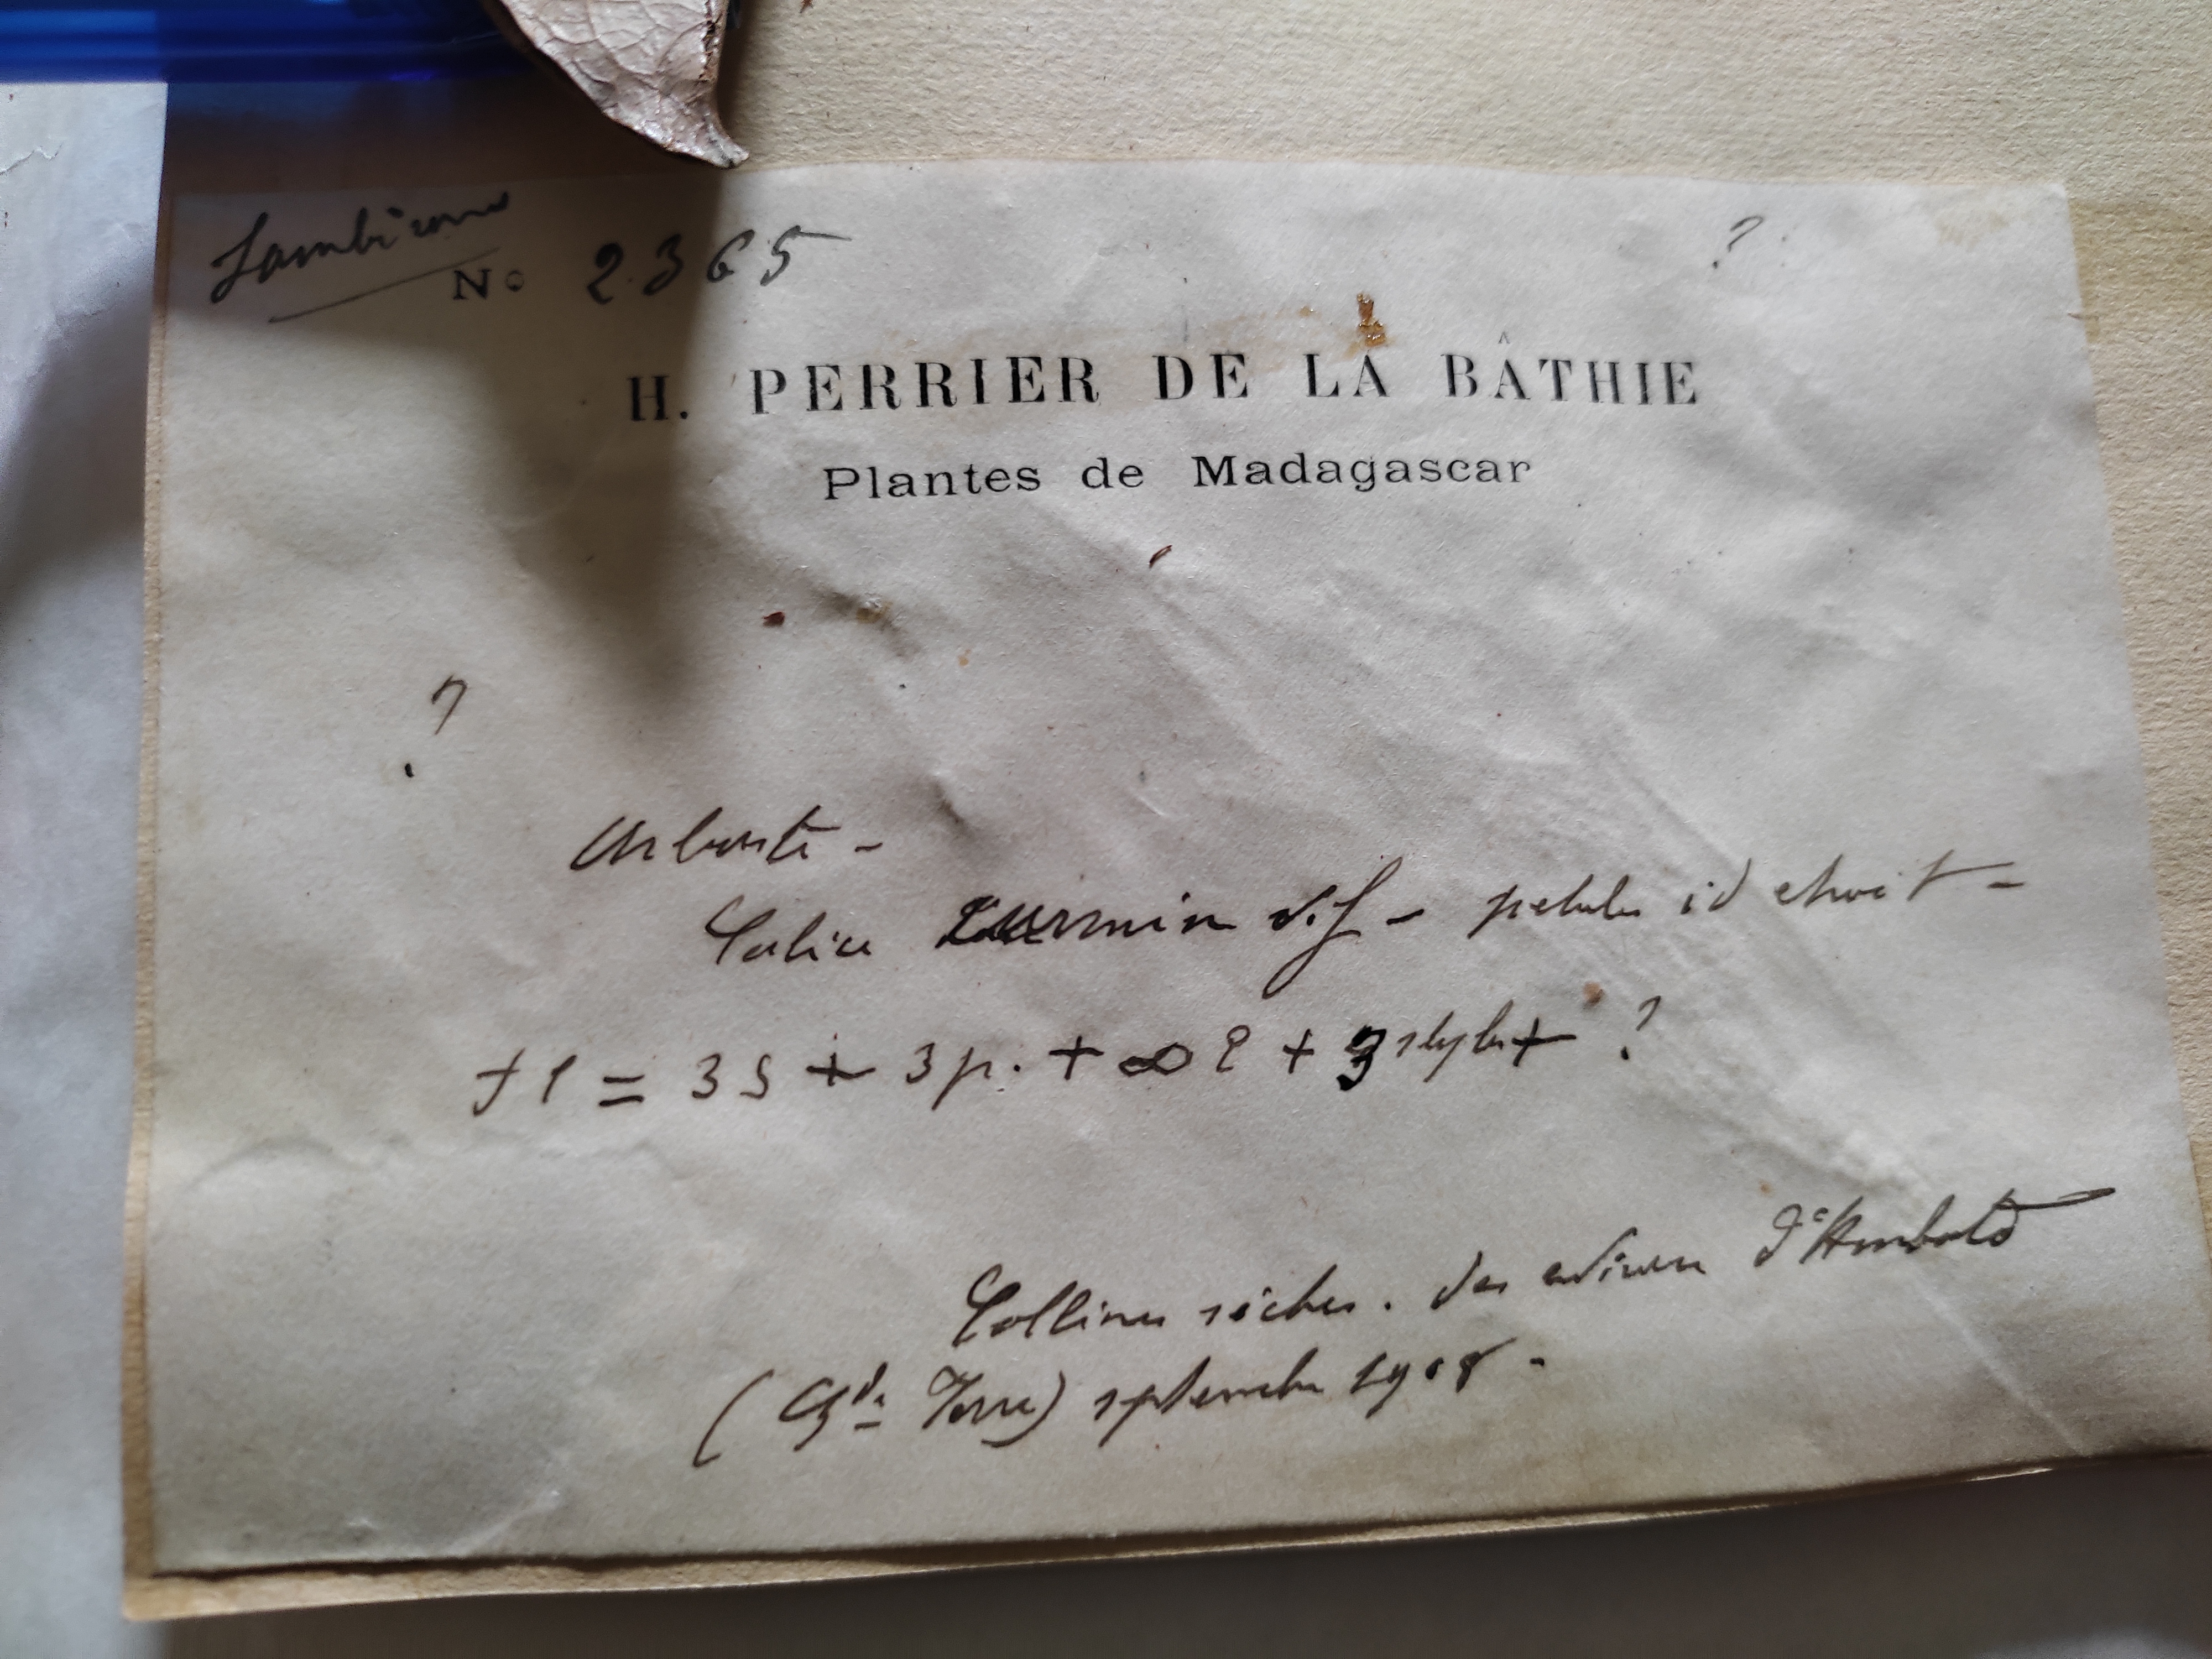 Sambirano
No 2365 ?
H. PERRIER DE LA BÂTHIE
Plantes de Madagascar
?
Arbuste -
Calice carmin vif - petales id etroit -
fl = 3 S + 3 p. + ∞ e + 3 styles + ?
Collines sèches. des environs d'Humbold
(Gde Terre) septembre 1908 -